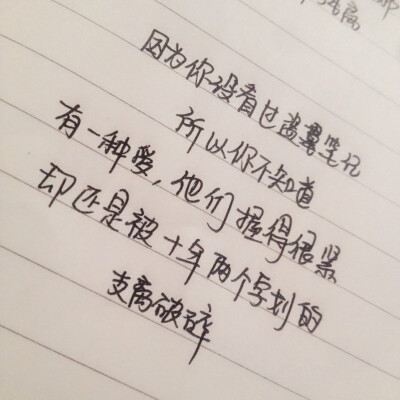 因为你没看过盗墓笔记
所以你不知道
有一种爱，他们握得很紧
却还是被十年两个字划的
支离破碎